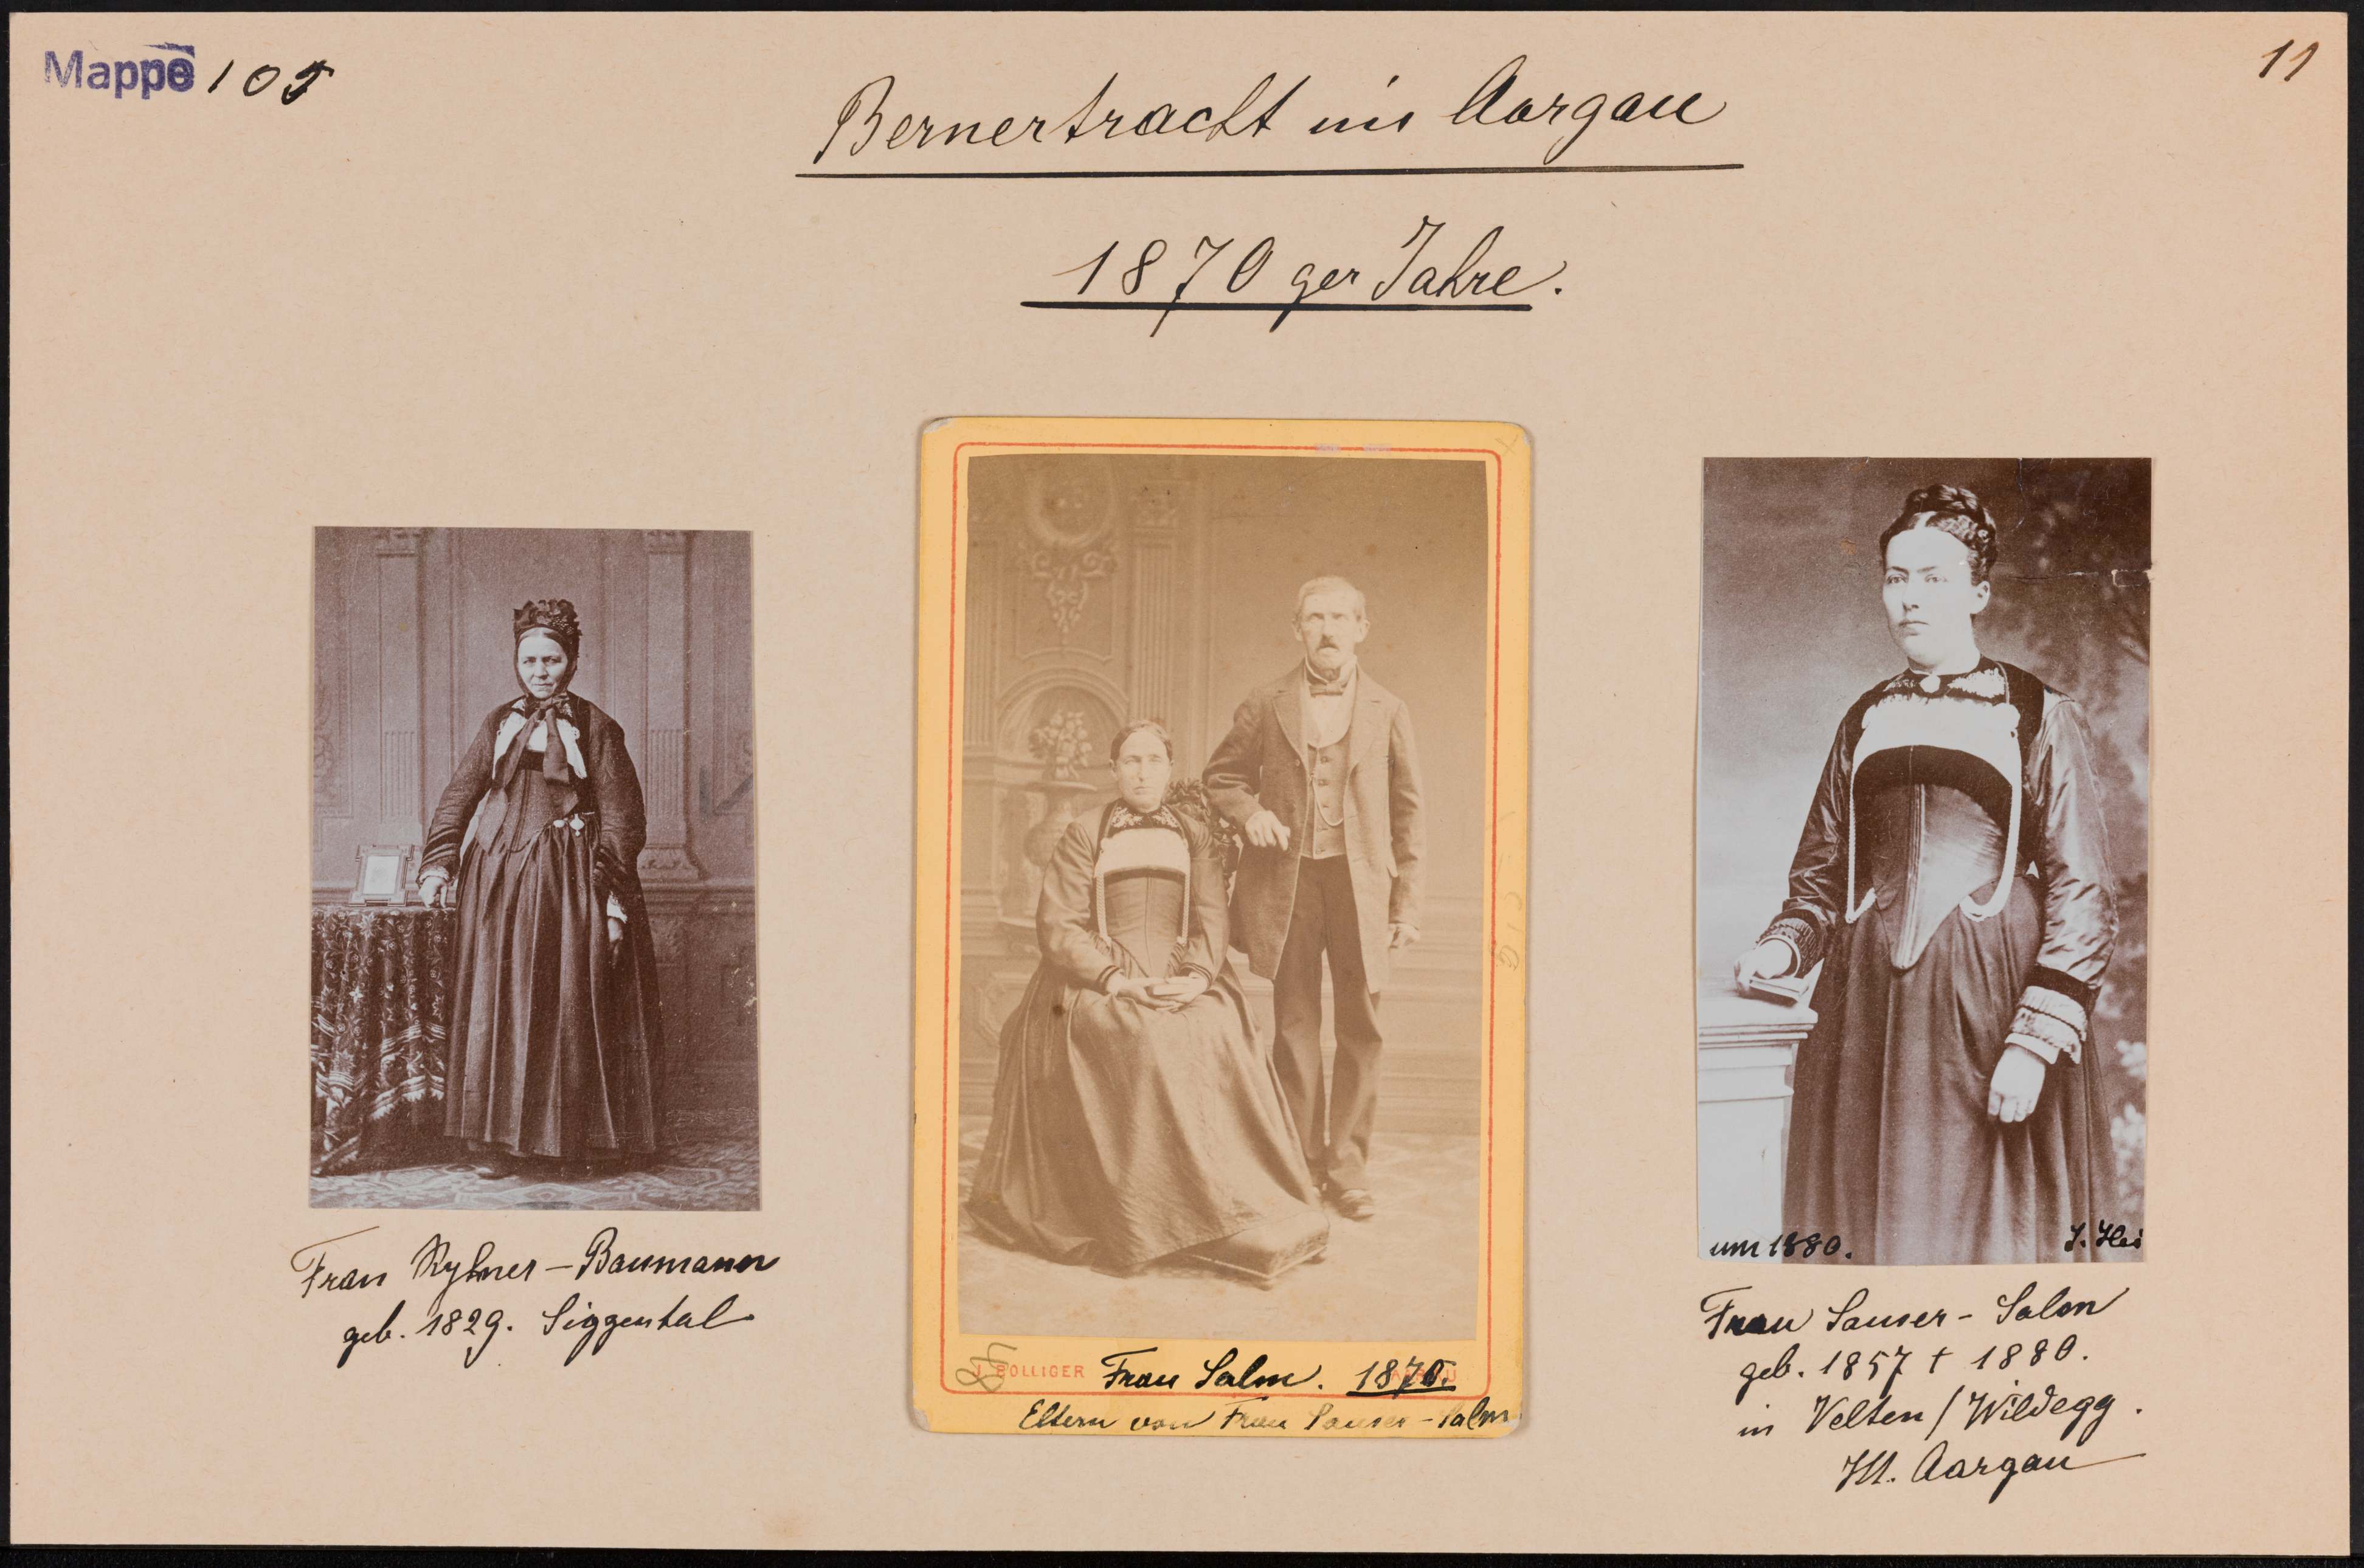 Mappe 105
11
Bernertracht im Aargau
1870 ger Jahre.
Frau Ryhner-Baumann
geb. 1829. Siggental
J. BOLLIGER
Frau Salm. 1870.
Eltern von Frau Sauser-Salm
um 1880.
Frau Sauser-Salm
geb. 1857 † 1880.
in Velten / Wildegg.
Kt. Aargau